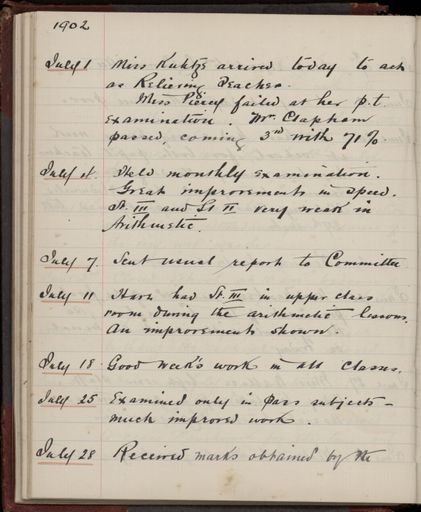 1902
July 1 Miss Kuhtze arrived today to act
as Relieving Teacher.
Miss Piercy failed at her p.t.
examination. Mr. Clapham
passed, coming 3rd with 71%
July 4. Held monthly examination.
Great improvements in speed.
St. III and St II very weak in
Arithmetic.
July 7. Sent usual report to Committee
July 11 Have had St. III in upper class
room during the arithmetic lessons.
An improvement shown.
July 18 Good week's work in all classes.
July 25 Examined only in pass subjects -
much improved work.
July 28 Received marks obtained by the